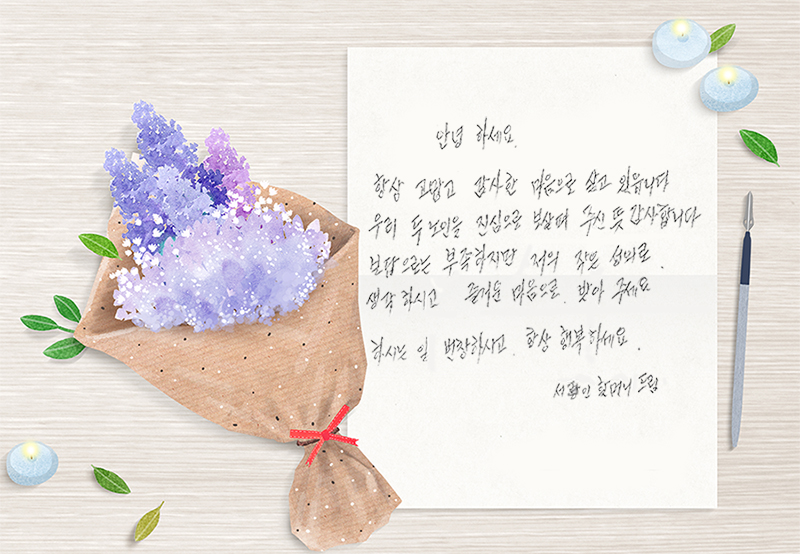 안녕 하세요.
항상 고맙고 감사한 마음으로 살고 있읍니다
우리 두 노인을 진심으로 보살펴 주신 뜻 감사합니다
보답으로는 부족하지만 저의 작은 성의로.
생각 하시고 즐거운 마음으로. 받아 주세요
하시는 일 번창하시고. 항상 행복하세요.
할머니 드림